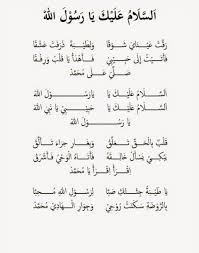 اَلسَّلَامُ عَلَيْكَ يَا رَسُوْلَ اللهْ
رَقَّتْ عَيْنَايَ شَوْقًا وَلِطَيْبَةَ ذَرَفَتْ عِشْقًا
فَأَتَيْتُ إِلَى حَبِيْبِيْ فَاهْدَأْ يَا قَلْبُ وَرِفْقًا
صَلِّ عَلَى مُحَمَّدْ
اَلسَّلَامُ عَلَيْكَ يَا يَارَسُوْلَ اللهْ
اَلسَّلَامُ عَلَيْكَ يَا حَبِيْبِيْ يَا نَبِيَّ
يَا رَسُوْلَ اللهْ
قَلْبٌ بِالْحَقِّ تَعَلَّقْ وَبِغَارِ حِرَاءَ تَأَلَّقْ
يَبْكِيْ يَسْأَلُ خَالِقَهُ فَأَتَاهُ الْوَحْيُ فَأَشْرَقْ
اِقْرَأْ يَا مُحَمَّدْ
يَا طَيْبَةُ جِئْتُكِ صَبًّا لِرَسُوْلِ اللهِ مُحِبًّا
بِالرَّوْضَةِ سَكَنَتْ رُوْحِيْ وَجِوَارِ الْهَادِيْ مُحَمَّدْ